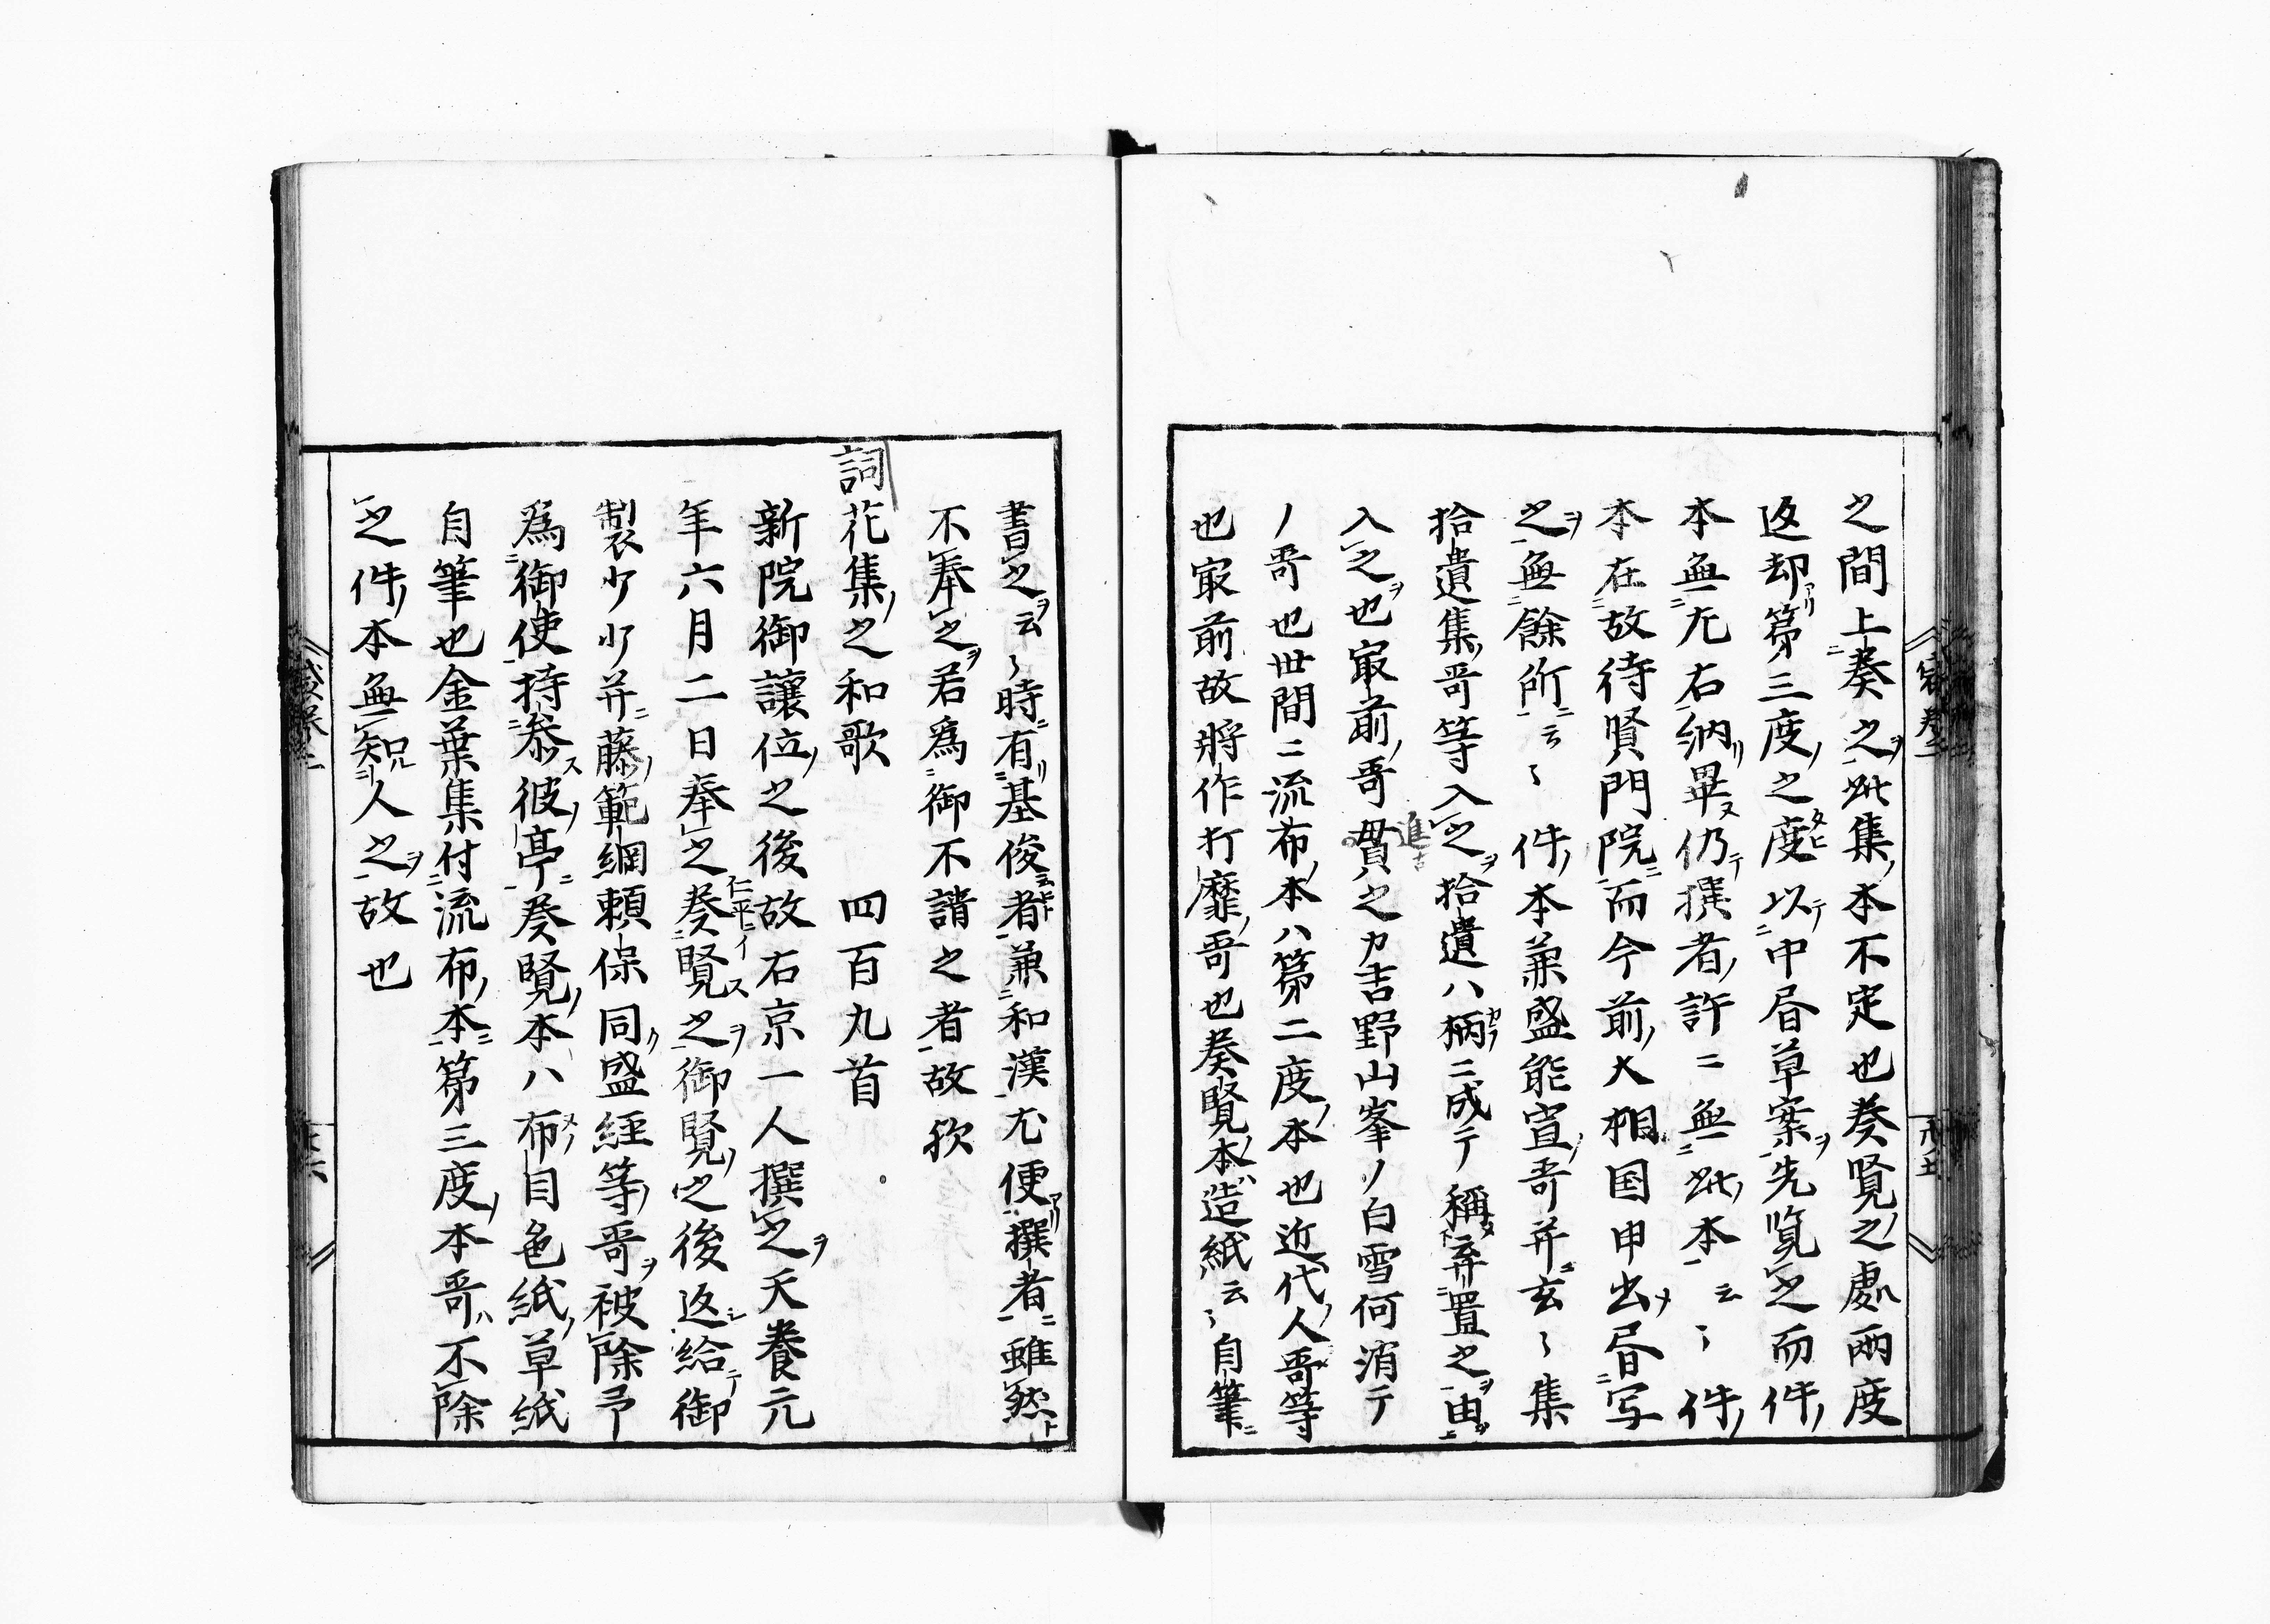 之間上奏之此集本不定也奏覧之處両度
返却第三度之度以中書草案先覧之而件
本無左右納畢仍撰者許ニ無此本云〻件
本在故待賢門院而今前大相国申出書写
之無餘所云〻件本兼盛能宣哥并玄〻集
拾遺集哥等入之拾遺ハ柄ニ成テ稱弃置之由
入之也冣前哥貫之カ吉野山峯ノ白雪何消テ
ノ哥也世間ニ流布本ハ第二度本也近代人哥等
也冣前故将作打靡哥也奏覧本造紙云〻自筆
書之云〻時有基俊者兼和漢尤便撰者雖然
不奉之若為御不請之者故欤
詞花集之和歌　四百九首
新院御譲位之後故右京一人撰之天養元
年六月二日奉之奏覧之御覧之後返給御
製少少并藤範綱頼保同盛経等哥被除弖
為御使持参彼亭奏覧本ハ布目色紙草紙
自筆也金葉集付流布本第三度本哥不除
之件本無知人之故也